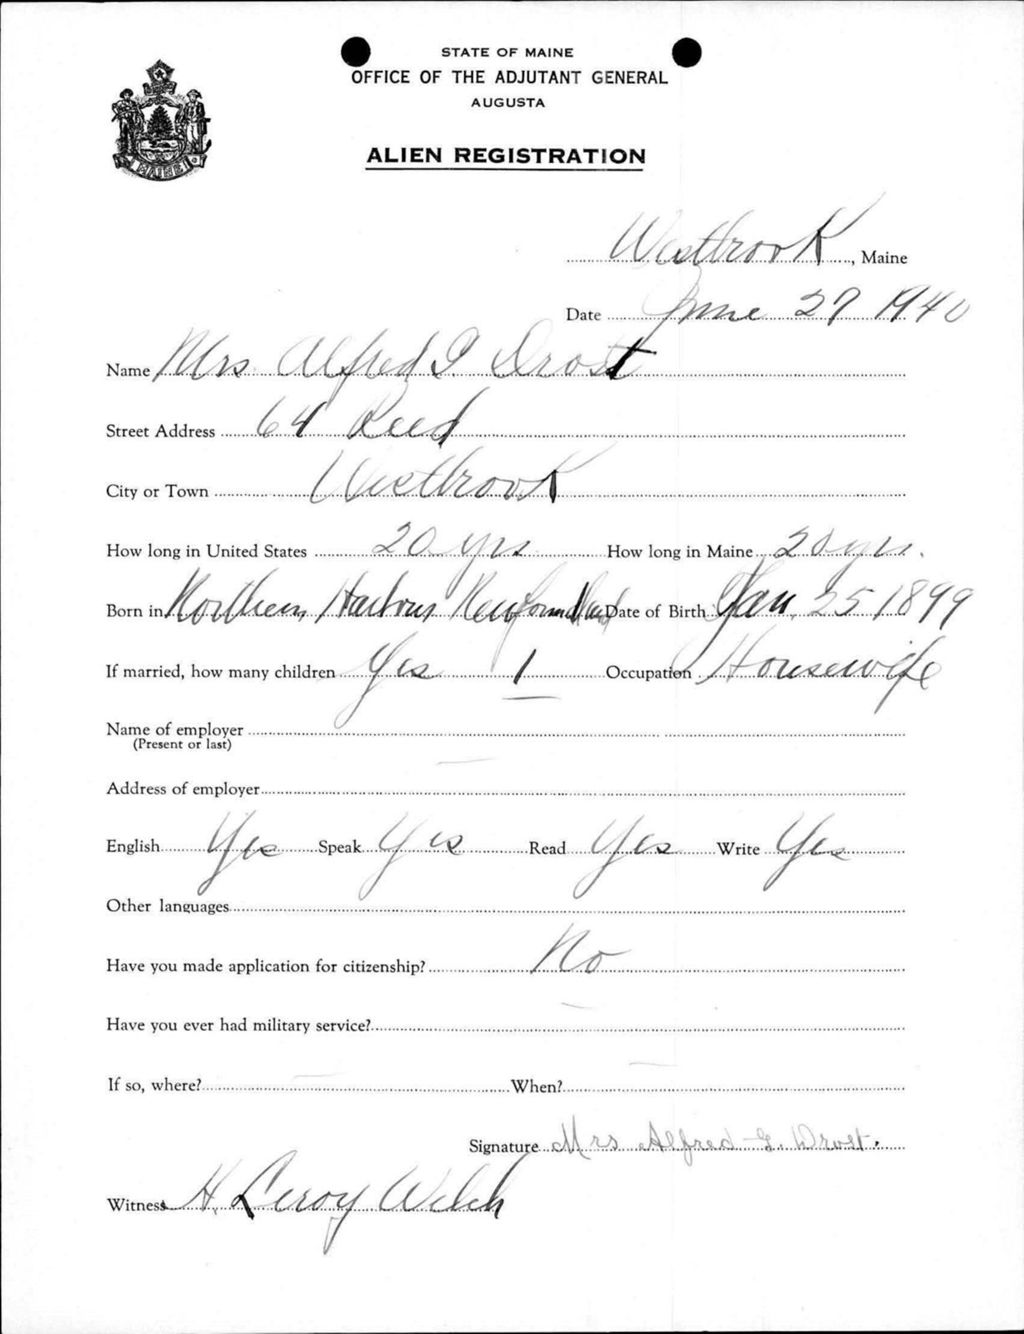 STATE OF MAINE
OFFICE OF THE ADJUTANT GENERAL
AUGUSTA
ALIEN REGISTRATION
MAINE
Westbrook, Maine
Date June 27 1940
Name Mrs. Alfred G. Drost
Street Address 64 Reed
City or Town Westbrook
How long in United States 20 yrs How long in Maine 20 yrs.
Born in Northern Harbour Newfoundland Date of Birth Jan. 25 1899
If married, how many children Yes 1 Occupation Housewife
Name of employer
(Present or last)
Address of employer
English Yes Speak Yes Read Yes Write Yes
Other languages
Have you made application for citizenship? No
Have you ever had military service?
If so, where? When?
Signature Mrs Alfred G. Drost.
Witness H. Leroy Welch